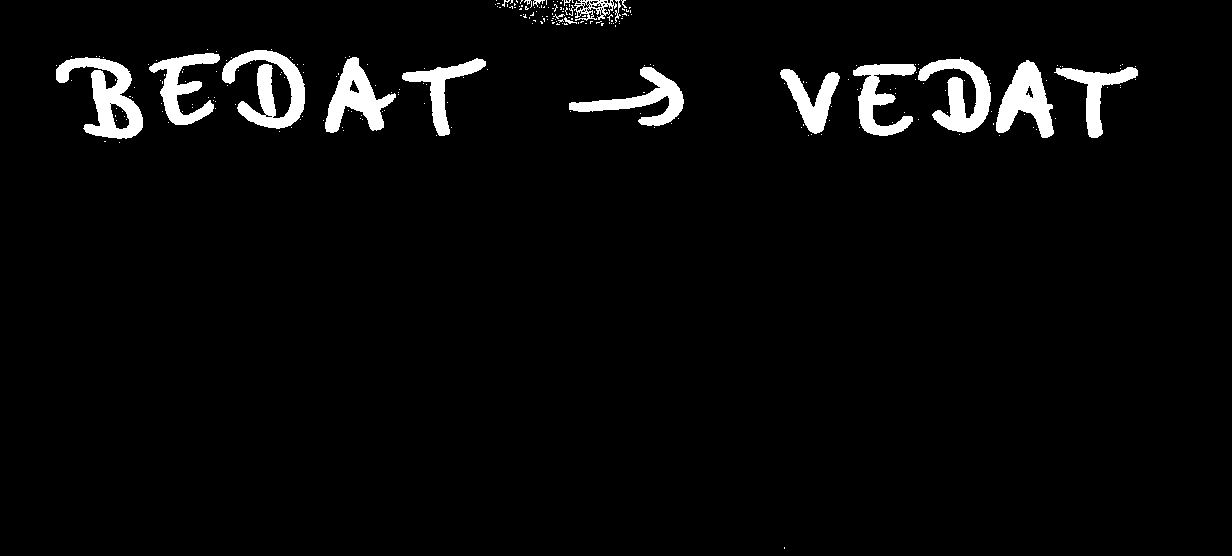 BEDAT → VEDAT